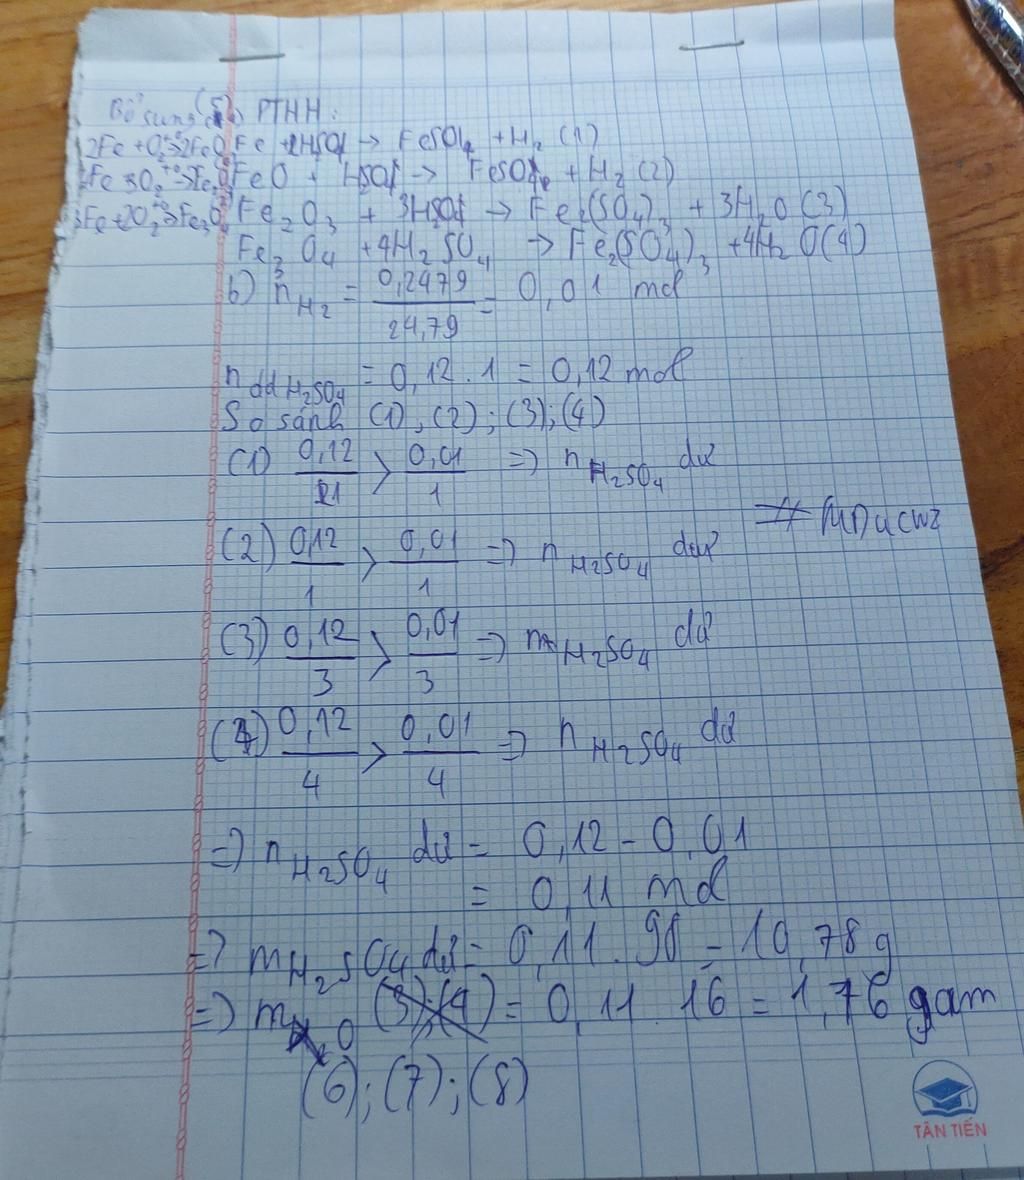 Bổ sung (5) PTHH:
2Fe + O₂ → 2FeO Fe + H₂SO₄ → FeSO₄ + H₂ (1)
FeO + H₂SO₄ → FeSO₄ + H₂ (2)
3Fe + 2O₂ → Fe₃O₄ Fe₂O₃ + 3H₂SO₄ → Fe₂(SO₄)₃ + 3H₂O (3)
Fe₃O₄ + 4H₂SO₄ → Fe₂(SO₄)₃ + 4H₂O (4)
b) n H₂ = 0,2479 / 24,79 = 0,01 mol
n dd H₂SO₄ = 0,12 . 1 = 0,12 mol
So sánh (1); (2); (3); (4)
(1) 0,12 / 1 > 0,01 / 1 => n H₂SO₄ dư
# MDucwz
(2) 0,12 / 1 > 0,01 / 1 => n H₂SO₄ dư
(3) 0,12 / 3 > 0,01 / 3 => n H₂SO₄ dư
(4) 0,12 / 4 > 0,01 / 4 => n H₂SO₄ dư
=> n H₂SO₄ dư = 0,12 - 0,01
= 0,11 mol
=> m H₂SO₄ dư = 0,11 . 98 = 10,78 g
=> m O (3);(4) = 0,11 . 16 = 1,76 gam
(6); (7); (8)
TÂN TIẾN